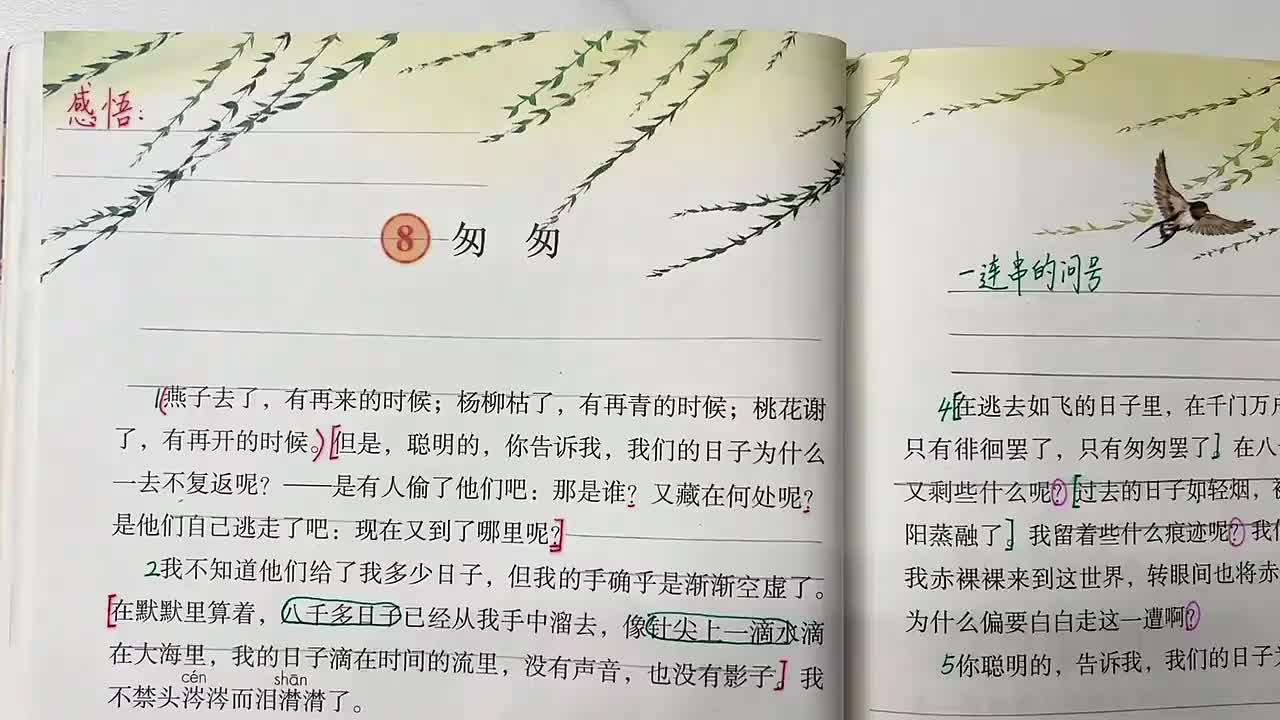 感悟：
8 匆匆
1(燕子去了，有再来的时候；杨柳枯了，有再青的时候；桃花谢
了，有再开的时候。)[但是，聪明的，你告诉我，我们的日子为什么
一去不复返呢？——是有人偷了他们吧：那是谁？又藏在何处呢？
是他们自己逃走了吧：现在又到了哪里呢？]
2我不知道他们给了我多少日子，但我的手确乎是渐渐空虚了。
[在默默里算着，八千多日子已经从我手中溜去，像针尖上一滴水滴
在大海里，我的日子滴在时间的流里，没有声音，也没有影子。]我
cén shān
不禁头涔涔而泪潸潸了。
一连串的问号
4[在逃去如飞的日子里，在千门万户
只有徘徊罢了，只有匆匆罢了]在八
又剩些什么呢？[过去的日子如轻烟，被
阳蒸融了]我留着些什么痕迹呢？我
我赤裸裸来到这世界，转眼间也将赤
为什么偏要白白走这一遭啊？
5你聪明的，告诉我，我们的日子